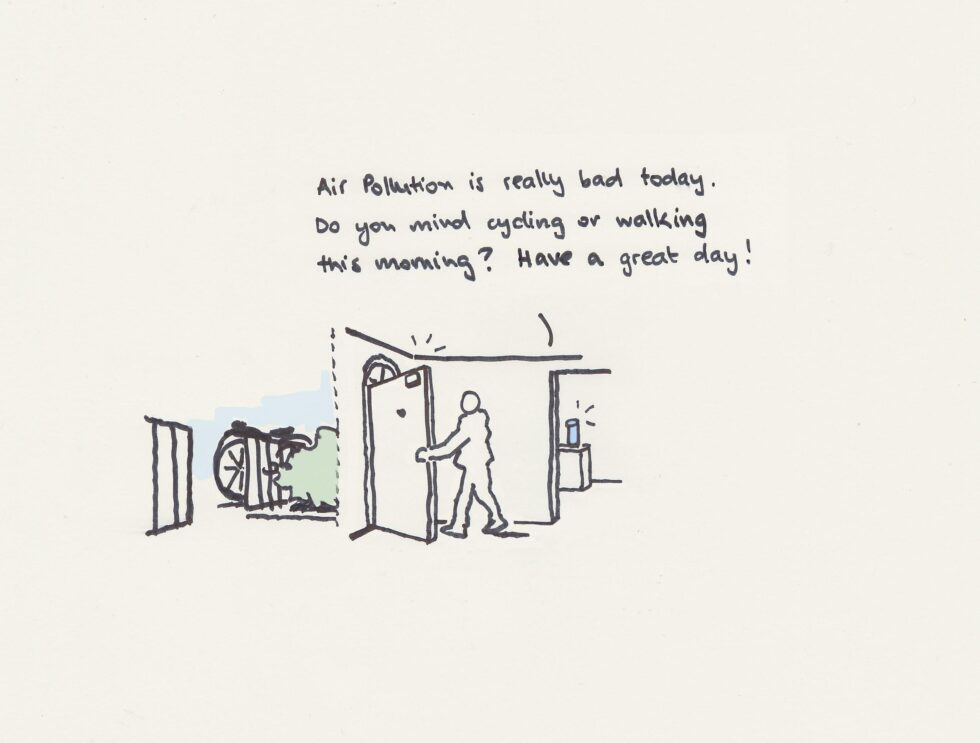 Air Pollution is really bad today.
Do you mind cycling or walking
this morning? Have a great day!